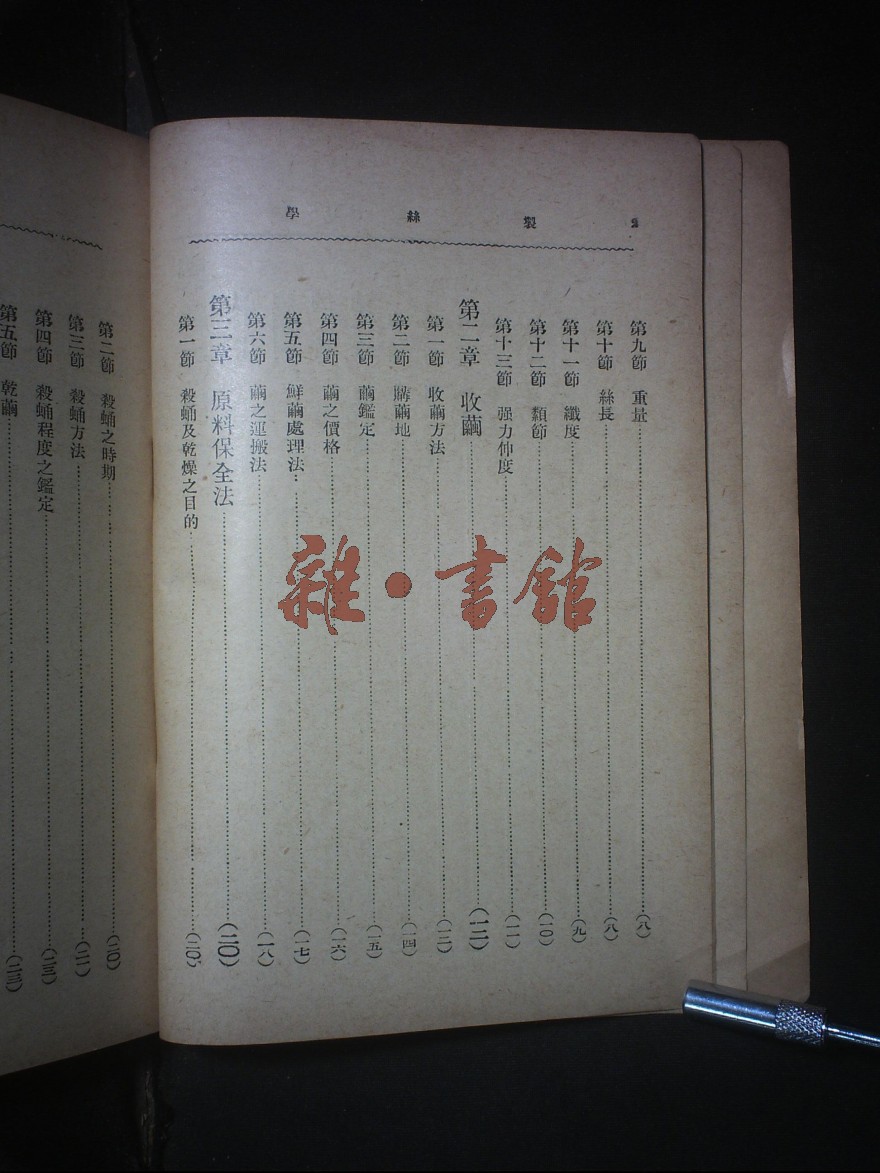 2 製絲學
第九節 重量……(八)
第十節 絲長……(八)
第十一節 纖度……(九)
第十二節 纇節……(一〇)
第十三節 强力伸度……(一一)
第二章 收繭……(一二)
第一節 收繭方法……(一二)
第二節 購繭地……(一四)
第三節 繭鑑定……(一五)
第四節 繭之價格……(一六)
第五節 鮮繭處理法……(一七)
第六節 繭之運搬法……(一八)
第三章 原料保全法……(二〇)
第一節 殺蛹及乾燥之目的……(二〇)
第二節 殺蛹之時期……(二〇)
第三節 殺蛹方法……(二一)
第四節 殺蛹程度之鑑定……(二三)
第五節 乾繭……(二三)
雜·書館